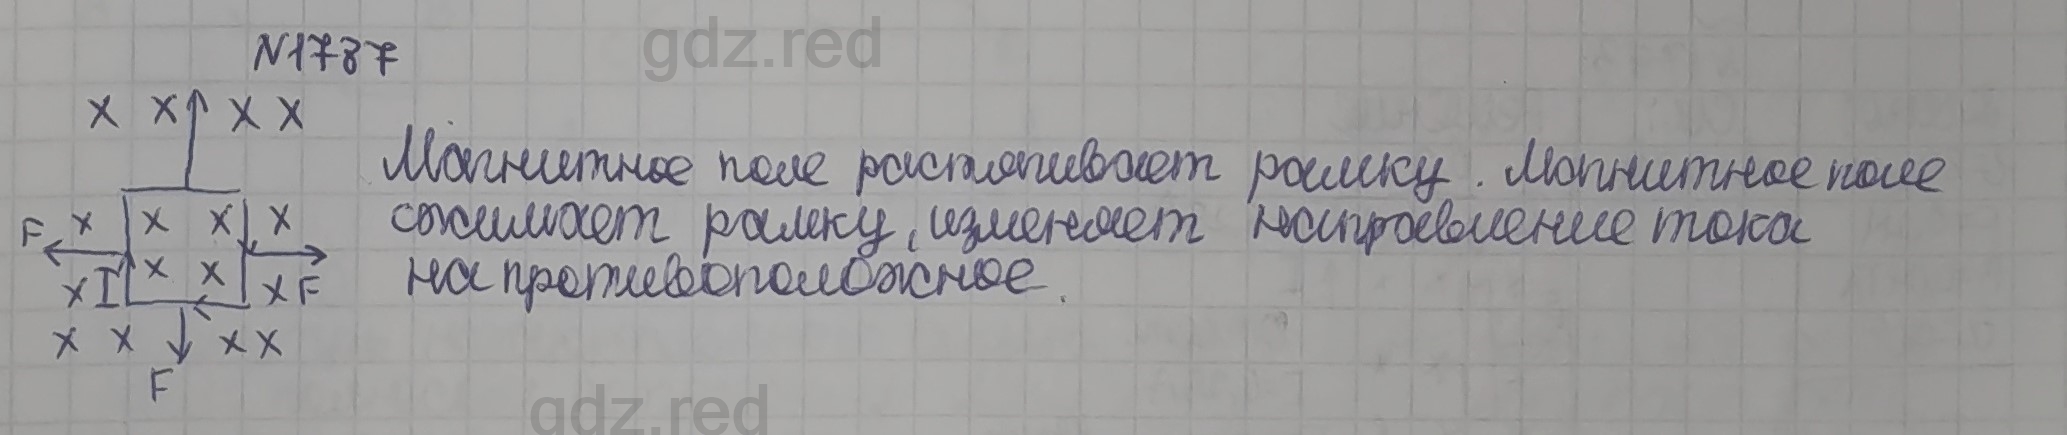 gdz.red
N1787
x x x x
Магнитное поле растягивает рамку. Магнитное поле
F x x x x
сжимает рамку, изменяет направление тока
x I x x x F
на противоположное.
x x x x
F
gdz.red